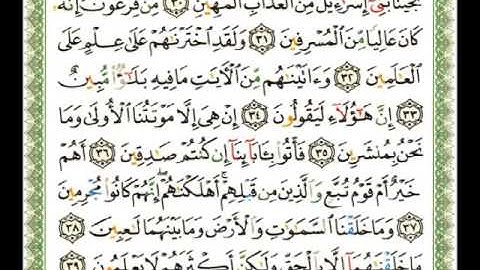 نَجَّيْنَا بَنِىٓ إِسْرَٰٓءِيلَ مِنَ ٱلْعَذَابِ ٱلْمُهِينِ ٣٠ مِن فِرْعَوْنَ إِنَّهُۥ
كَانَ عَالِيًا مِّنَ ٱلْمُسْرِفِينَ ٣١ وَلَقَدِ ٱخْتَرْنَٰهُمْ عَلَىٰ عِلْمٍ عَلَى
ٱلْعَٰلَمِينَ ٣٢ وَءَاتَيْنَٰهُم مِّنَ ٱلْءَايَٰتِ مَا فِيهِ بَلَٰٓؤٌا۟ مُّبِينٌ
٣٣ إِنَّ هَٰٓؤُلَآءِ لَيَقُولُونَ ٣٤ إِنْ هِىَ إِلَّا مَوْتَتُنَا ٱلْأُولَىٰ وَمَا
نَحْنُ بِمُنشَرِينَ ٣٥ فَأْتُوا۟ بِـَٔابَآئِنَآ إِن كُنتُمْ صَٰدِقِينَ ٣٦ أَهُمْ
خَيْرٌ أَمْ قَوْمُ تُبَّعٍ وَٱلَّذِينَ مِن قَبْلِهِمْ ۚ أَهْلَكْنَٰهُمْ ۖ إِنَّهُمْ كَانُوا۟ مُجْرِمِينَ
٣٧ وَمَا خَلَقْنَا ٱلسَّمَٰوَٰتِ وَٱلْأَرْضَ وَمَا بَيْنَهُمَا لَٰعِبِينَ ٣٨
مَا خَلَقْنَٰهُمَآ إِلَّا بِٱلْحَقِّ وَلَٰكِنَّ أَكْثَرَهُمْ لَا يَعْلَمُونَ ٣٩